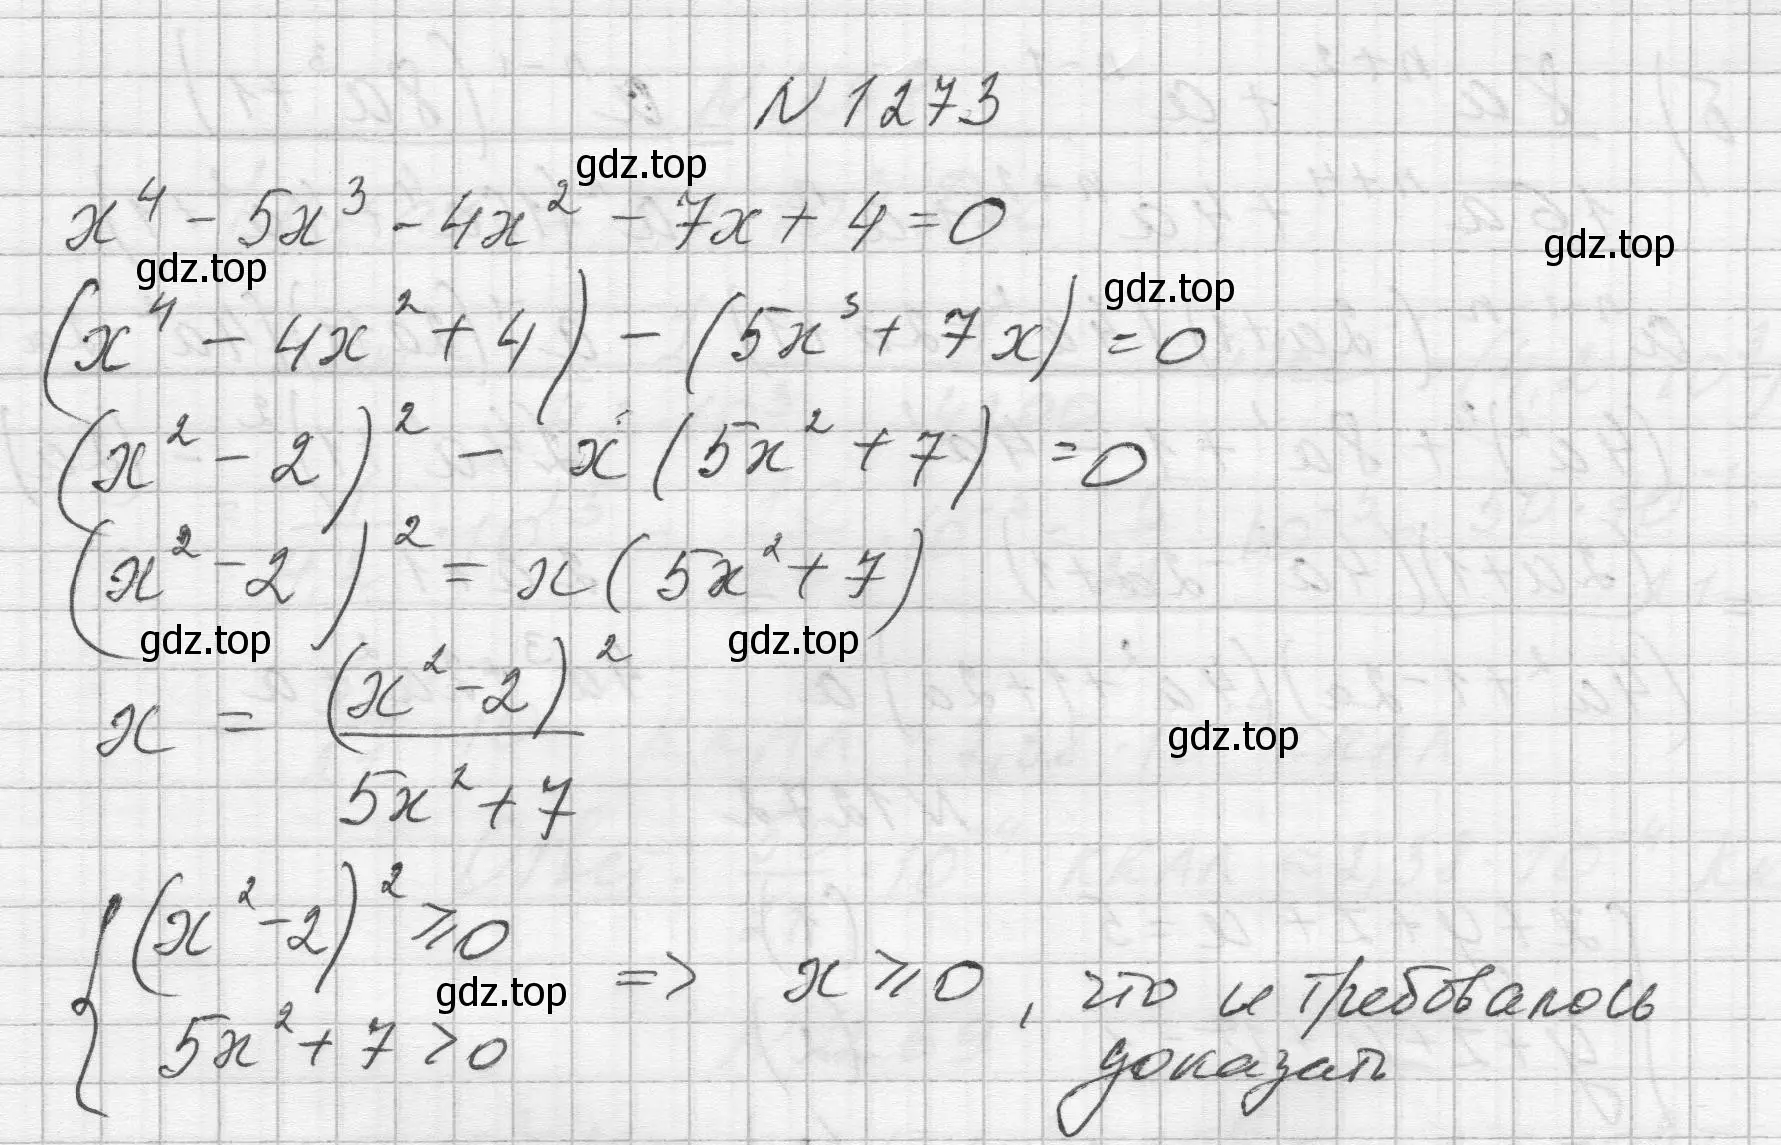 N 1273
gdz.top
x⁴ - 5x³ - 4x² - 7x + 4 = 0
gdz.top
gdz.top
gdz.top
(x⁴ - 4x² + 4) - (5x³ + 7x) = 0
(x² - 2)² - x (5x² + 7) = 0
(x² - 2)² = x (5x² + 7)
gdz.top
gdz.top
x = (x² - 2)² / 5x² + 7
gdz.top
{ (x² - 2)² ⩾ 0
gdz.top
5x² + 7 > 0
=> x ⩾ 0, что и требовалось
доказать